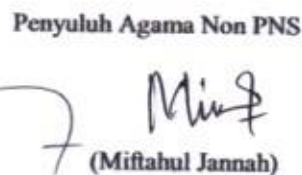 Penyuluh Agama Non PNS
(Miftahul Jannah)